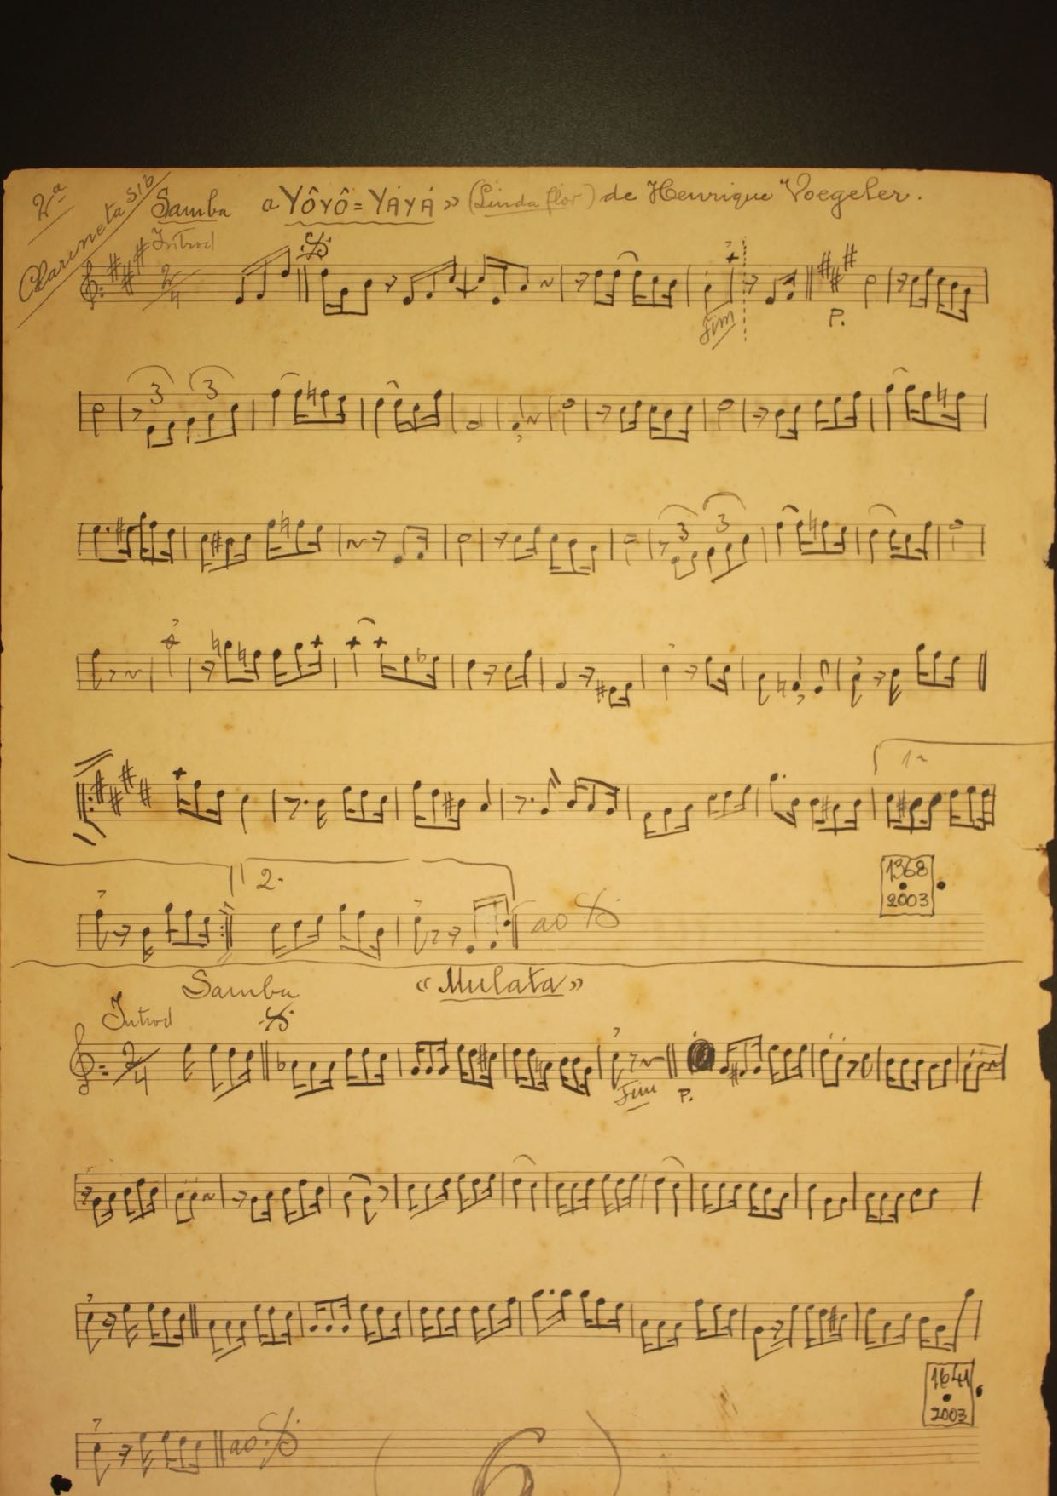 2ª
Clarineta Sib
Samba « YÔYÔ = YÁYÁ » (Linda flor) de Henrique Voegeler.
Introd
2/4
Fim
P.
3 3
3 3
1ª
2.
1368
2003
ao
Samba « Mulata »
Introd
2/4
Fim P.
1641
2003
ao
6